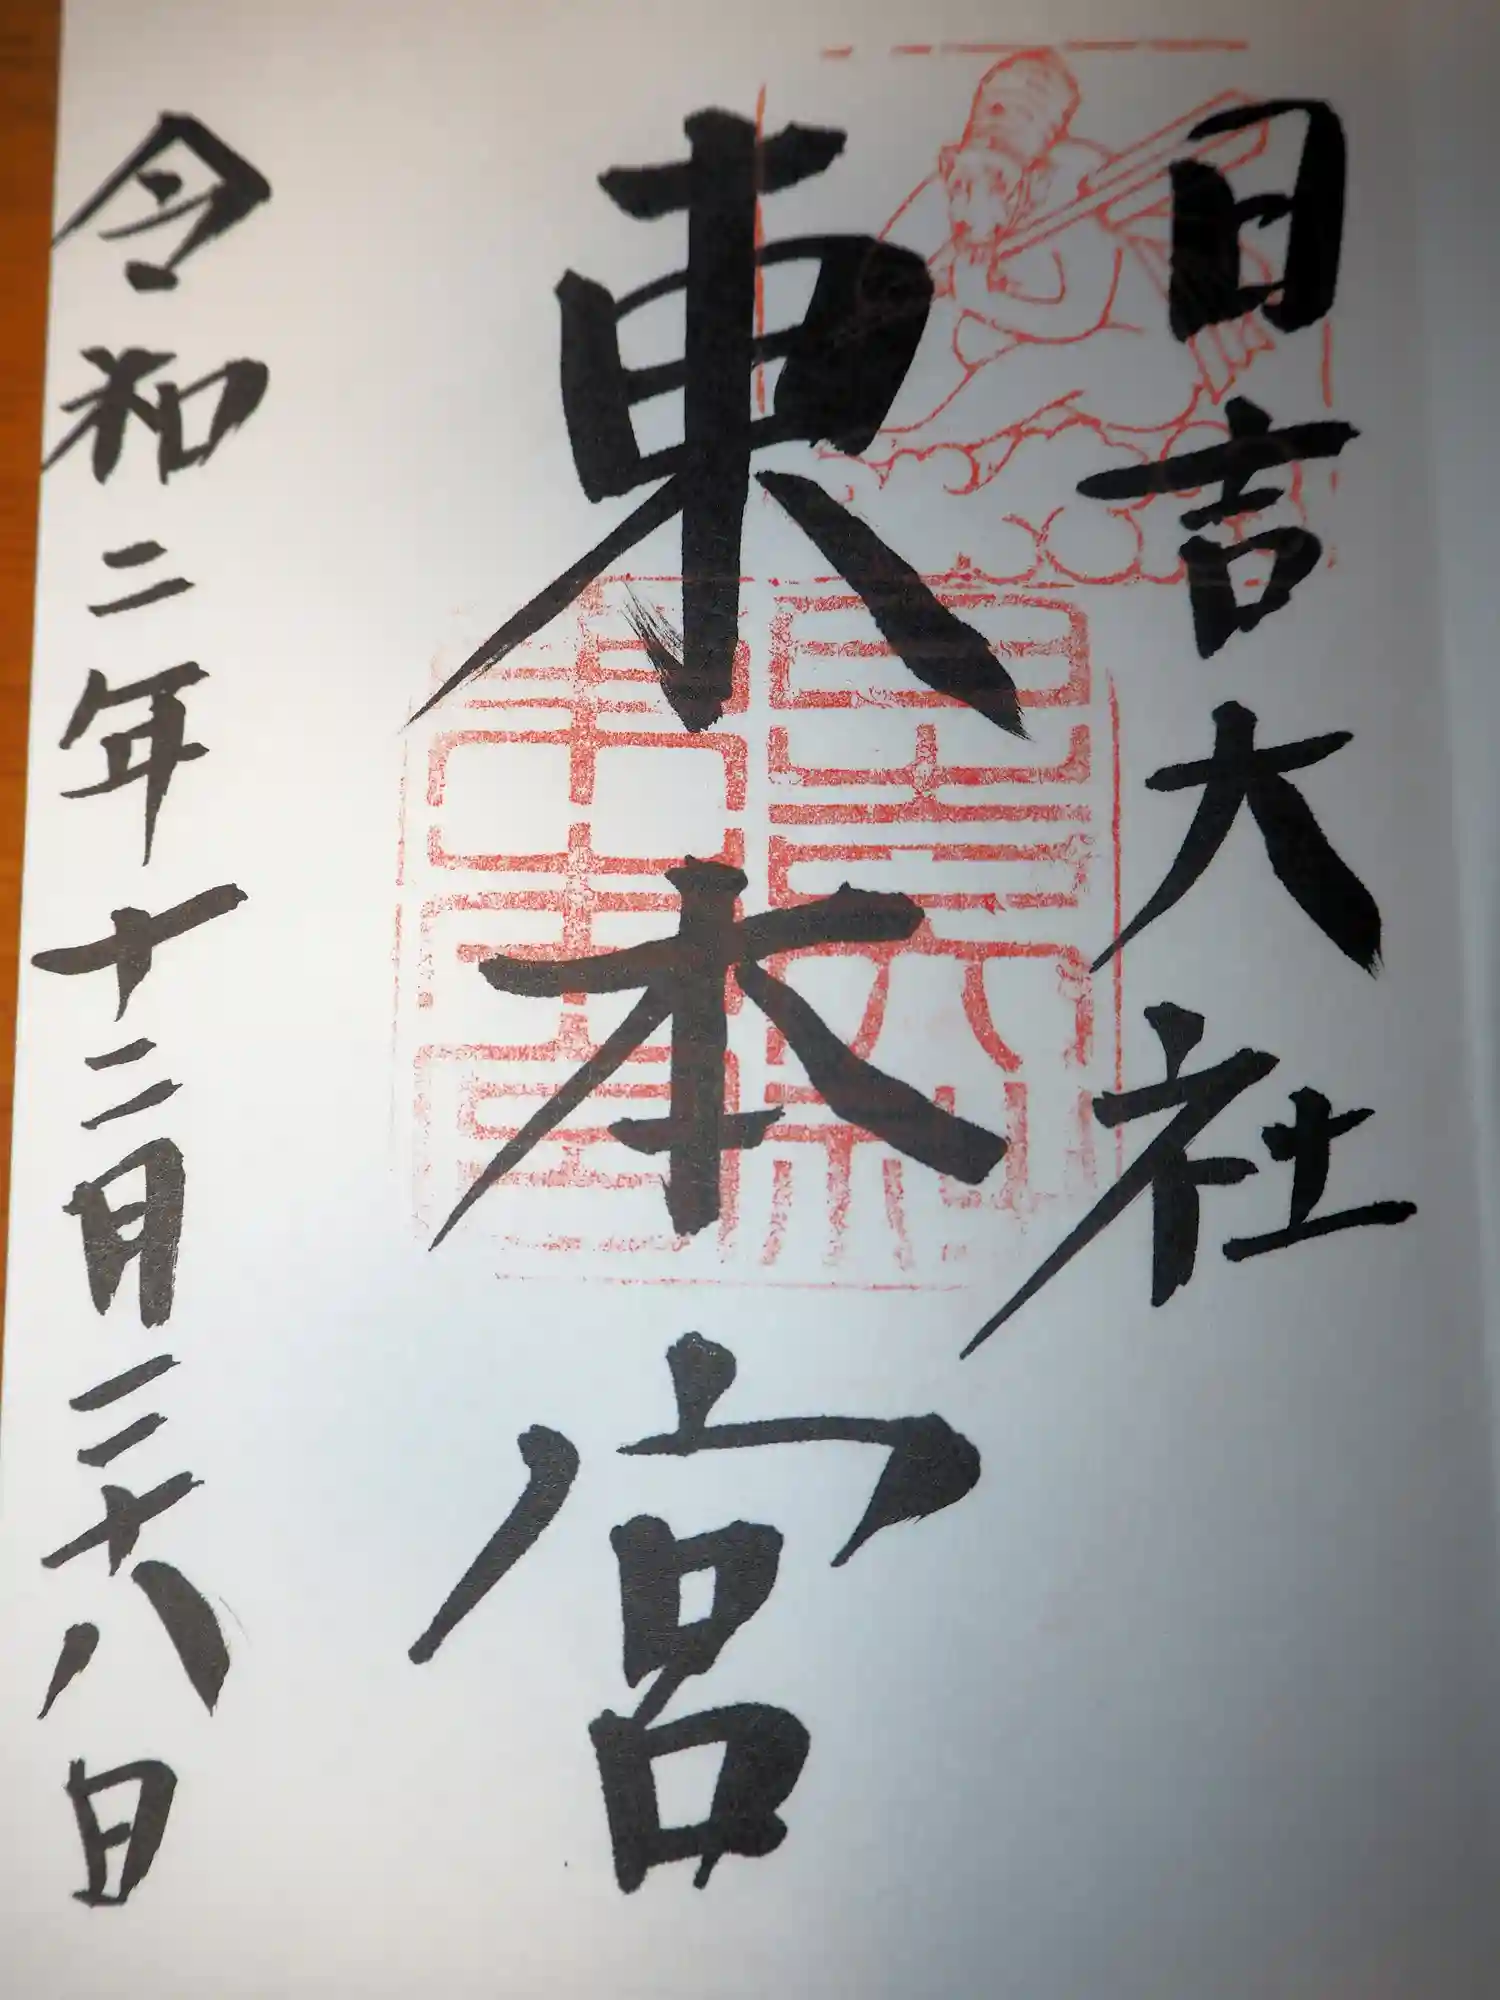 日吉大社
東本宮
令和二年十二月二十八日